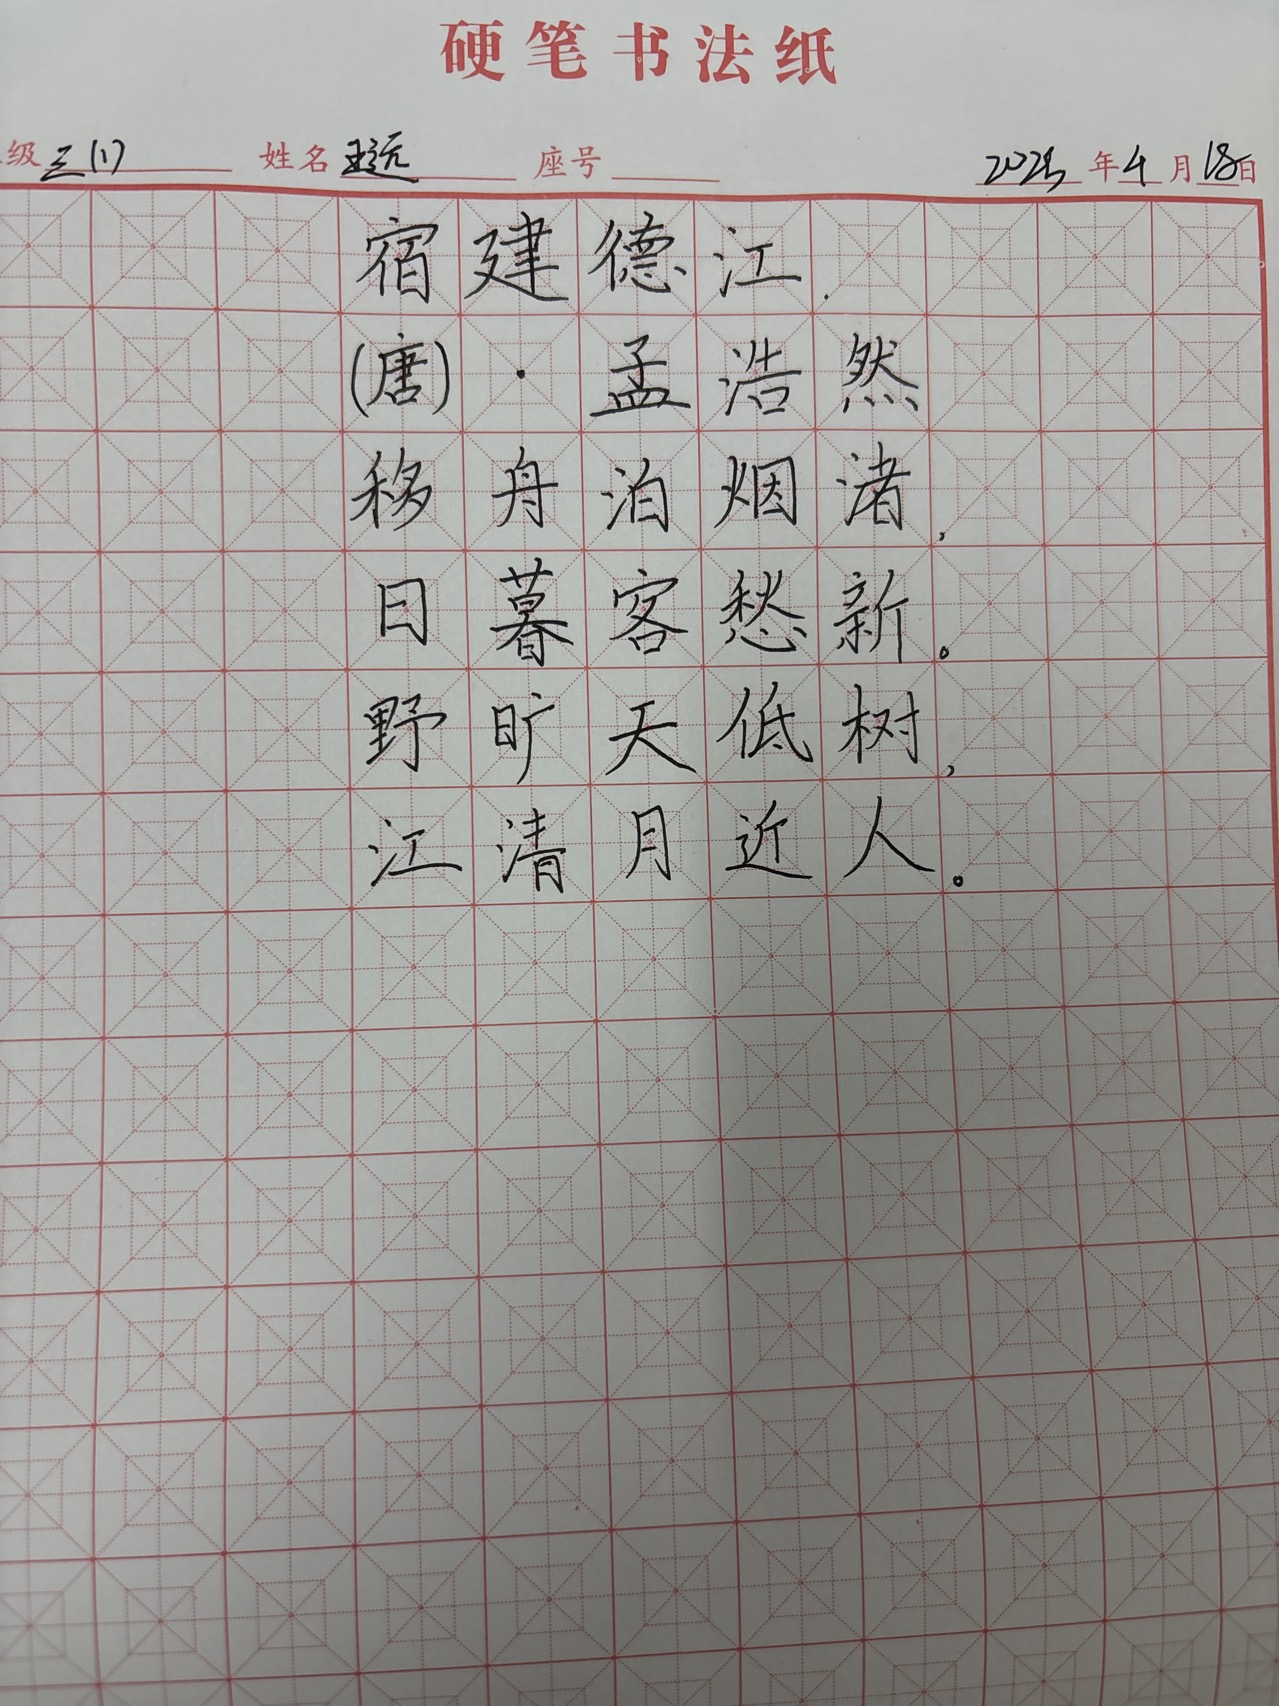 硬笔书法纸
级 三(1) 姓名 王远 座号 2025年4月18日
宿建德江.
(唐)·孟浩然
移舟泊烟渚,
日暮客愁新。
野旷天低树,
江清月近人。